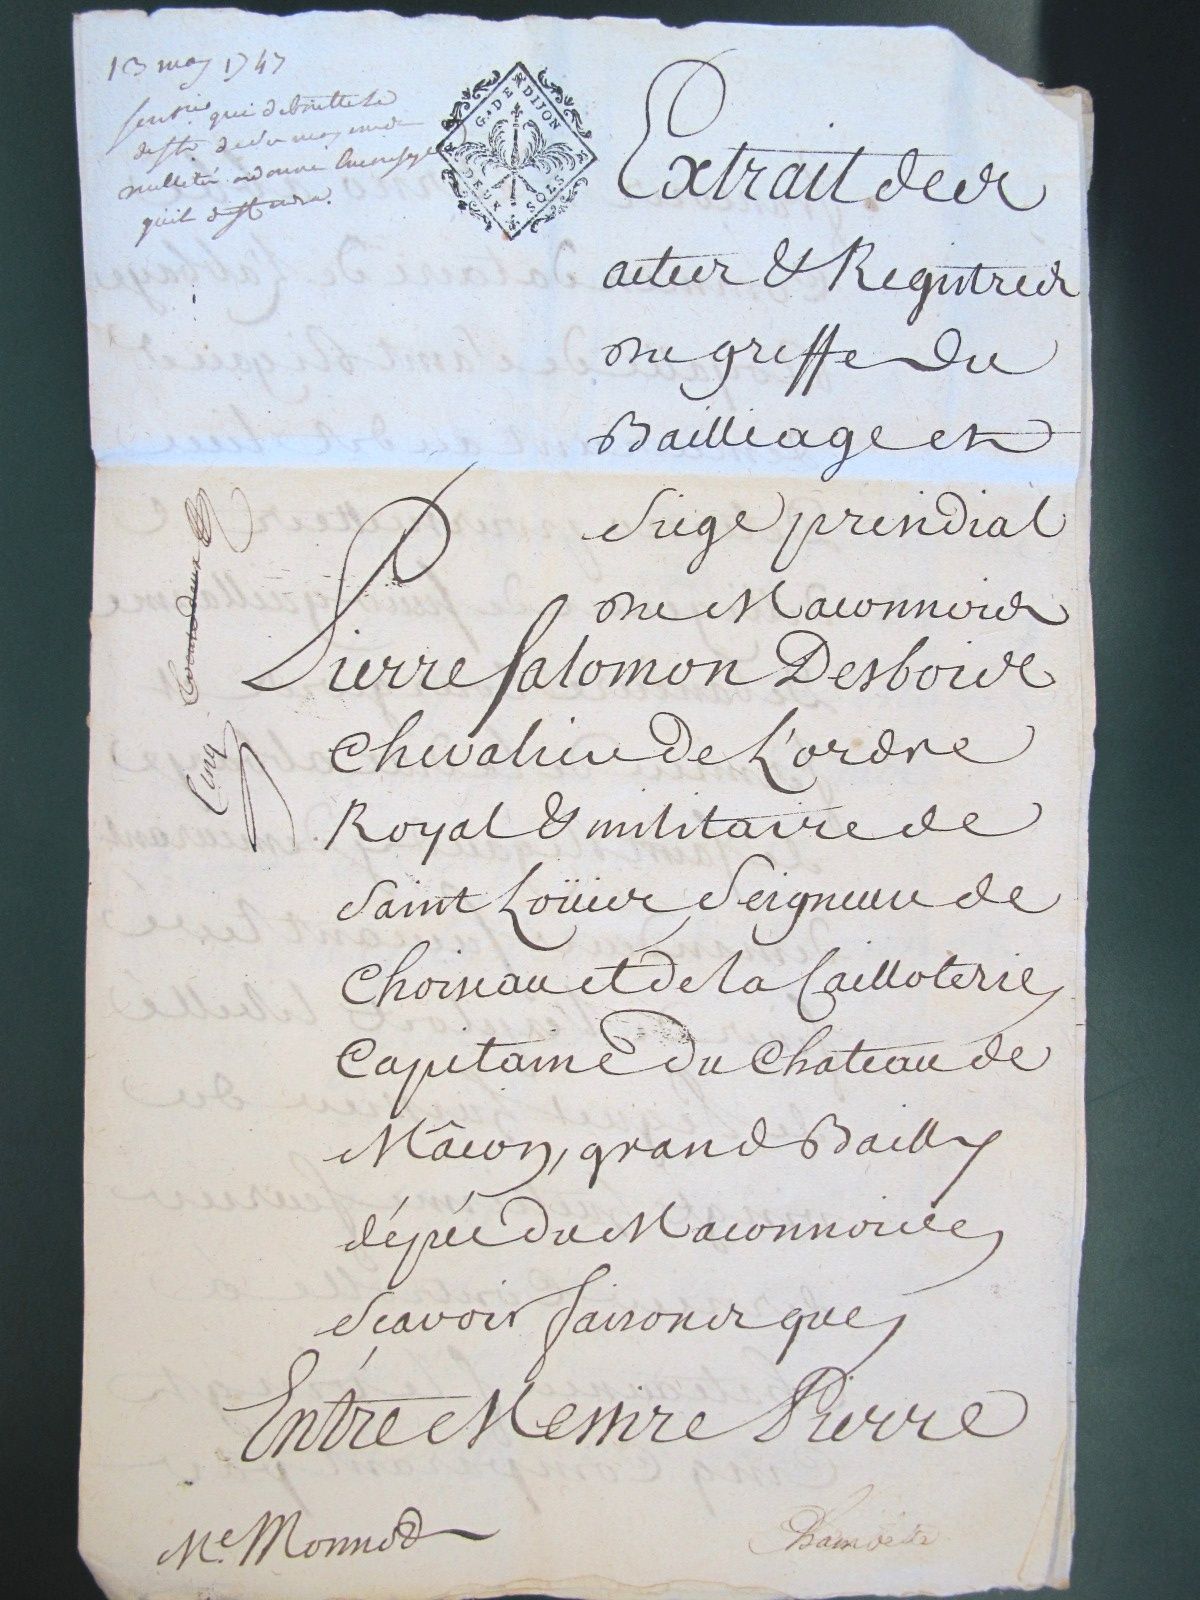 13 may 1747
sentence qui deboutte le
deffr de son moyen de
nullité ordonne
qu'il deffendra.
G. DE DIJON
DEUX SOLS
Extrait des
actes & Registres
du greffe du
Bailliage et
Siege presidial
du Maconnois
Pierre Salomon Desbois
Chevalier de L'ordre
Royal & militaire de
Saint Loüis Seigneur de
Choiseau et de la Cailloterie
Capitaine du Chateau de
Mâcon, grand Bailly
dépée du Maconnois
Scavoir faisons que
Entre Messire Pierre
Cinq
Me. Monnod